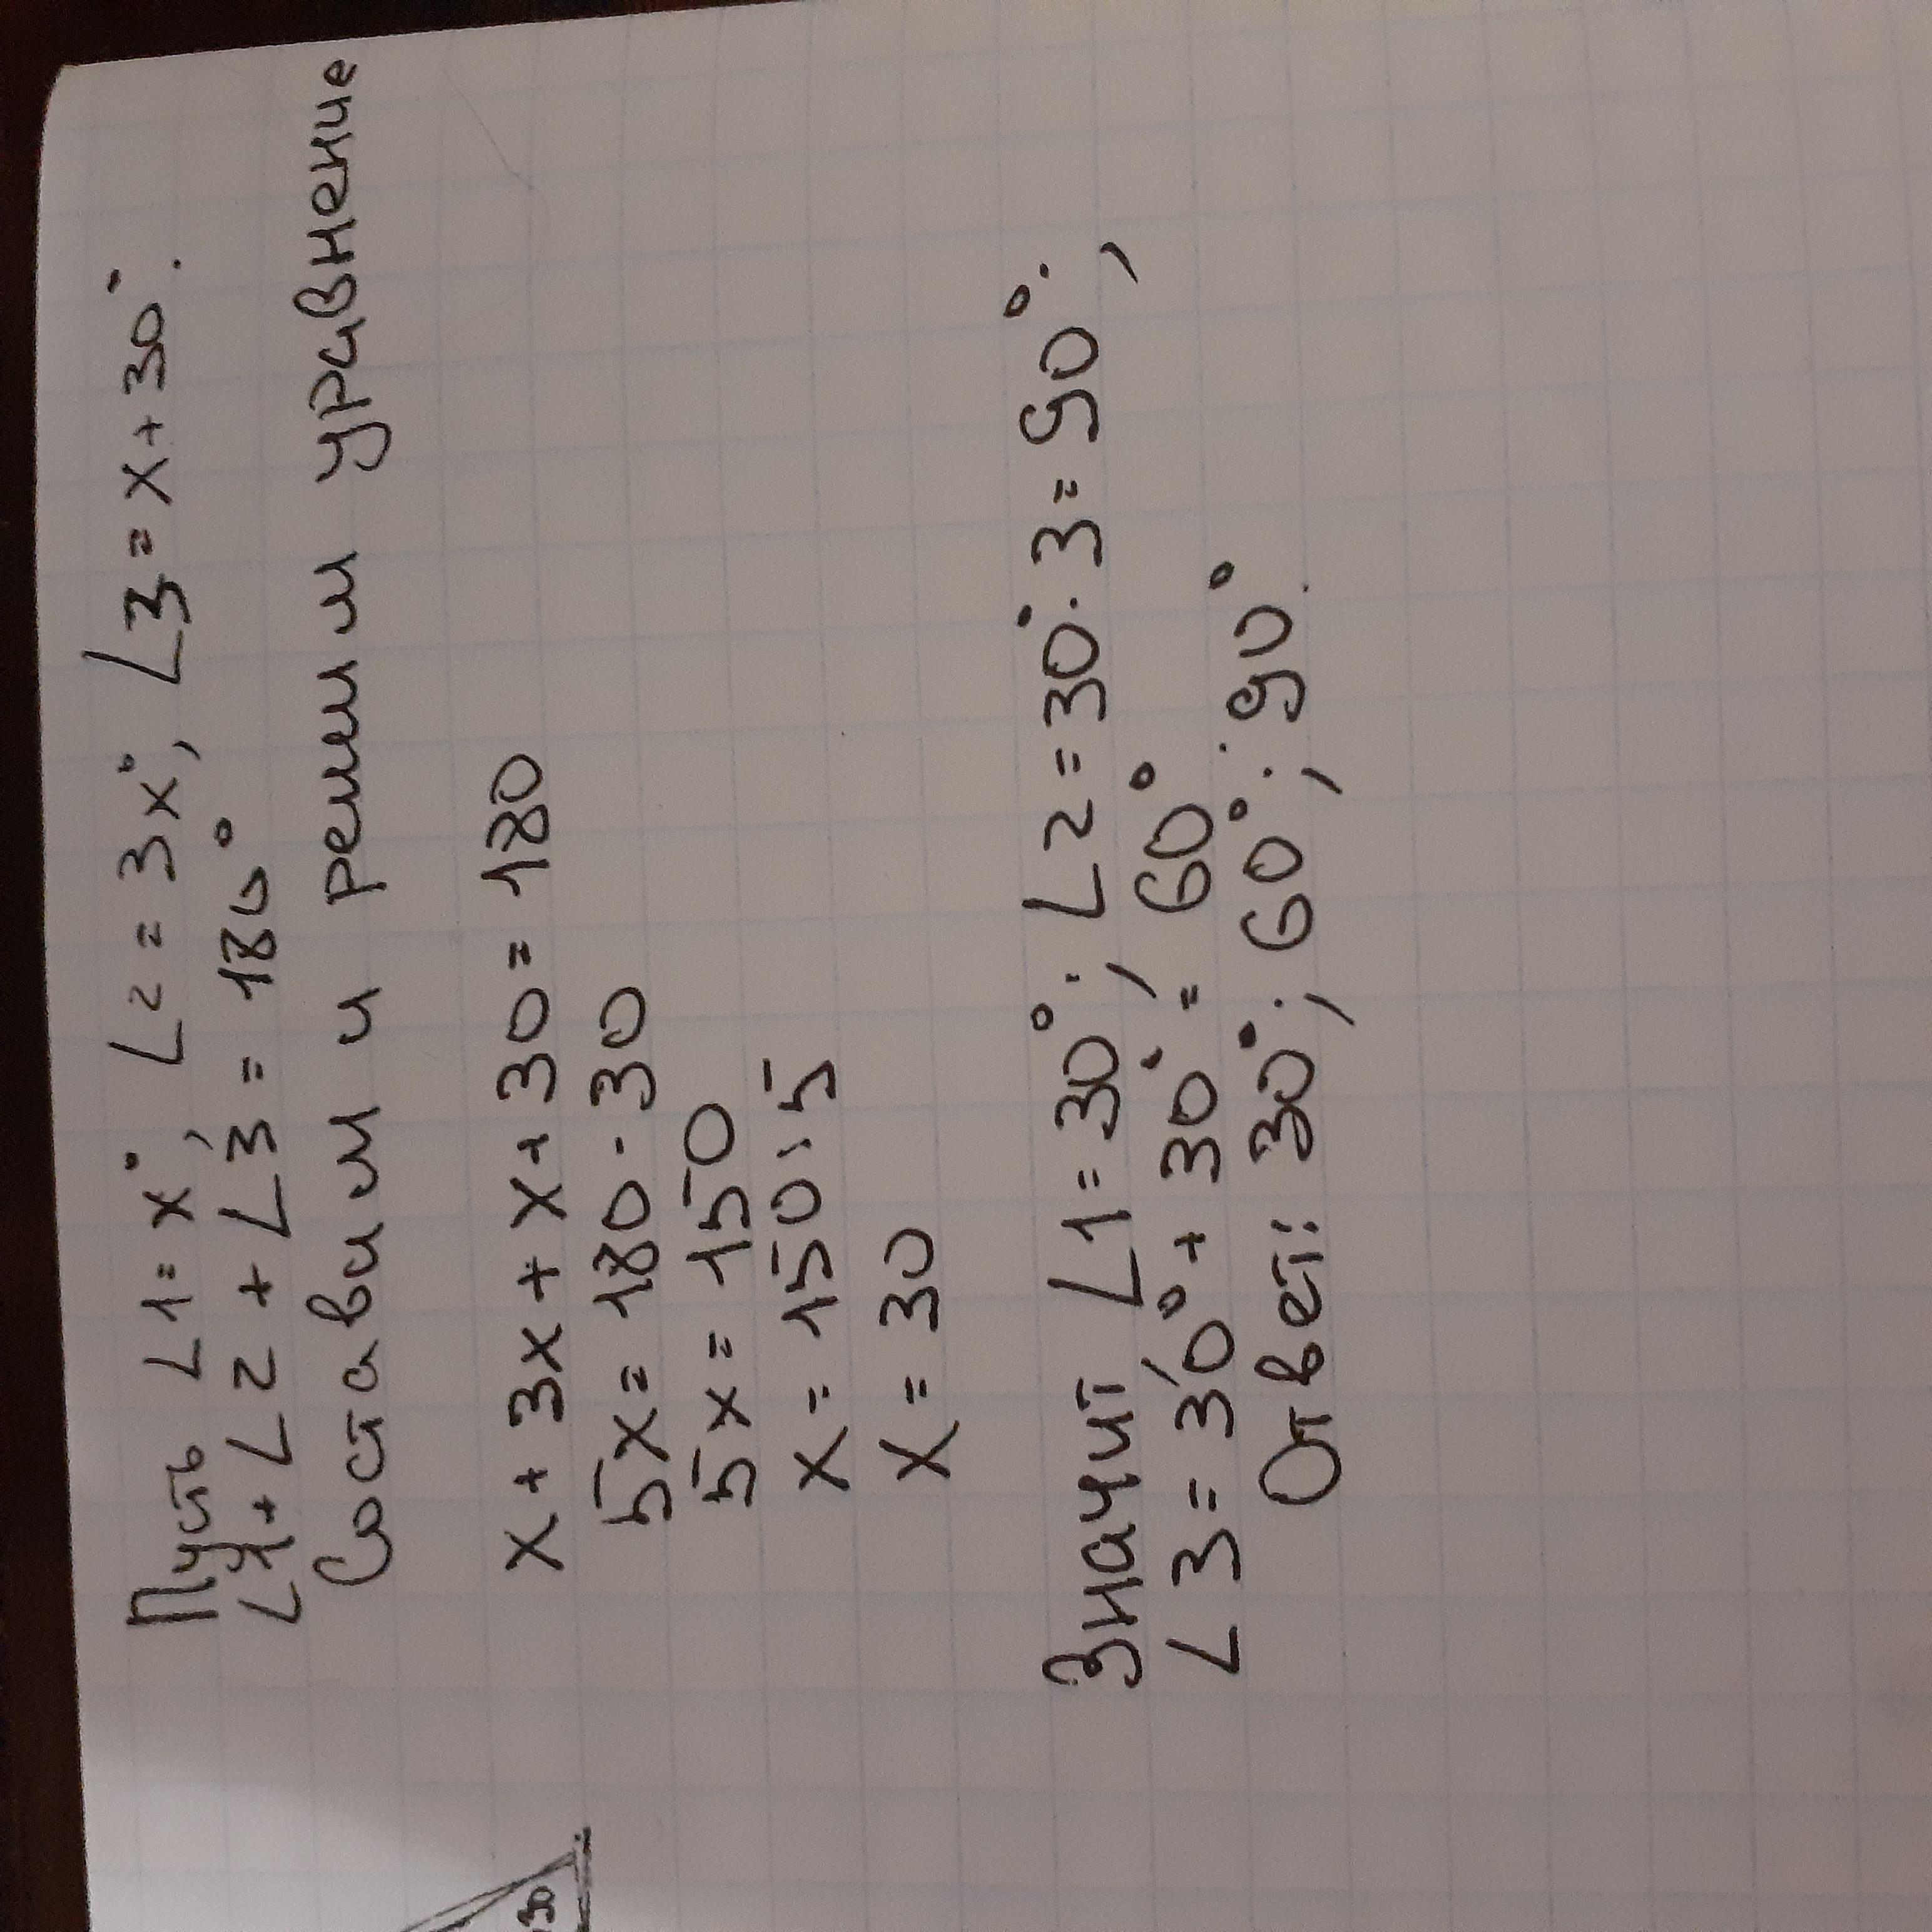 Пусть ∠1=x°, ∠2=3x°, ∠3=x+30°.
∠1+∠2+∠3=180°
Составим и решим уравнение
x+3x+x+30=180
5x=180-30
5x=150
x=150:5
x=30
Значит ∠1=30°; ∠2=30°·3=90°;
∠3=30°+30°=60°
Ответ: 30°; 60°; 90°.